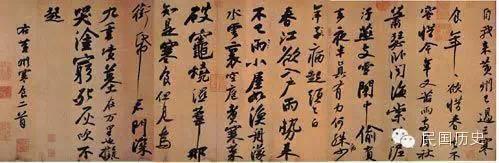 自我来黄州已過三寒
食年々欲惜春春去不
容惜今年又苦雨兩月秋
蕭瑟卧聞海棠花泥
汙燕支雪闇中偷負
去夜半真有力何殊
年子病起頭已白
春江欲入户雨勢来
不已雨小屋如漁舟濛々
水雲裏空庖煮寒菜
破竈燒濕葦那
知是寒食但見烏
銜帋君門深
九重墳墓在万里也擬
哭塗窮死灰吹不
起
右黄州寒食二首
民国历史